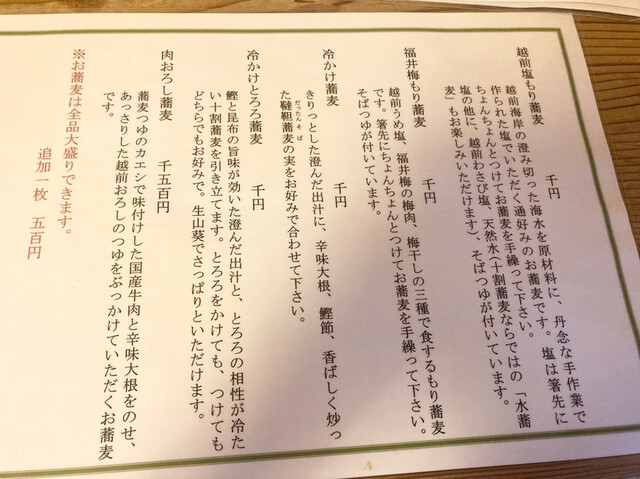 越前塩もり蕎麦　　　千円
越前海岸の澄み切った海水を原材料に、丹念な手作業で
作られた塩でいただく通好みのお蕎麦です。塩は箸先に
ちょんちょんとつけてお蕎麦を手繰って下さい。
塩の他に、越前わさび塩、天然水(十割蕎麦ならではの「水蕎
麦」もお楽しみいただけます)、そばつゆが付いています。
福井梅もり蕎麦　　　千円
越前うめ塩、福井梅の梅肉、梅干しの三種で食するもり蕎麦
です。箸先にちょんちょんとつけてお蕎麦を手繰って下さい。
そばつゆが付いています。
冷かけ蕎麦　　　千円
きりっとした澄んだ出汁に、辛味大根、鰹節、香ばしく炒っ
た韃靼蕎麦の実をお好みで合わせて下さい。
だったんそば
冷かけとろろ蕎麦　　　千円
鰹と昆布の旨味が効いた澄んだ出汁と、とろろの相性が冷た
い十割蕎麦を引き立てます。とろろをかけても、つけても
どちらでもお好みで。生山葵でさっぱりといただけます。
肉おろし蕎麦　　　千五百円
蕎麦つゆのカエシで味付けした国産牛肉と辛味大根をのせ、
あっさりした越前おろしのつゆをぶっかけていただくお蕎麦
です。
※お蕎麦は全品大盛りできます。
追加一枚　五百円